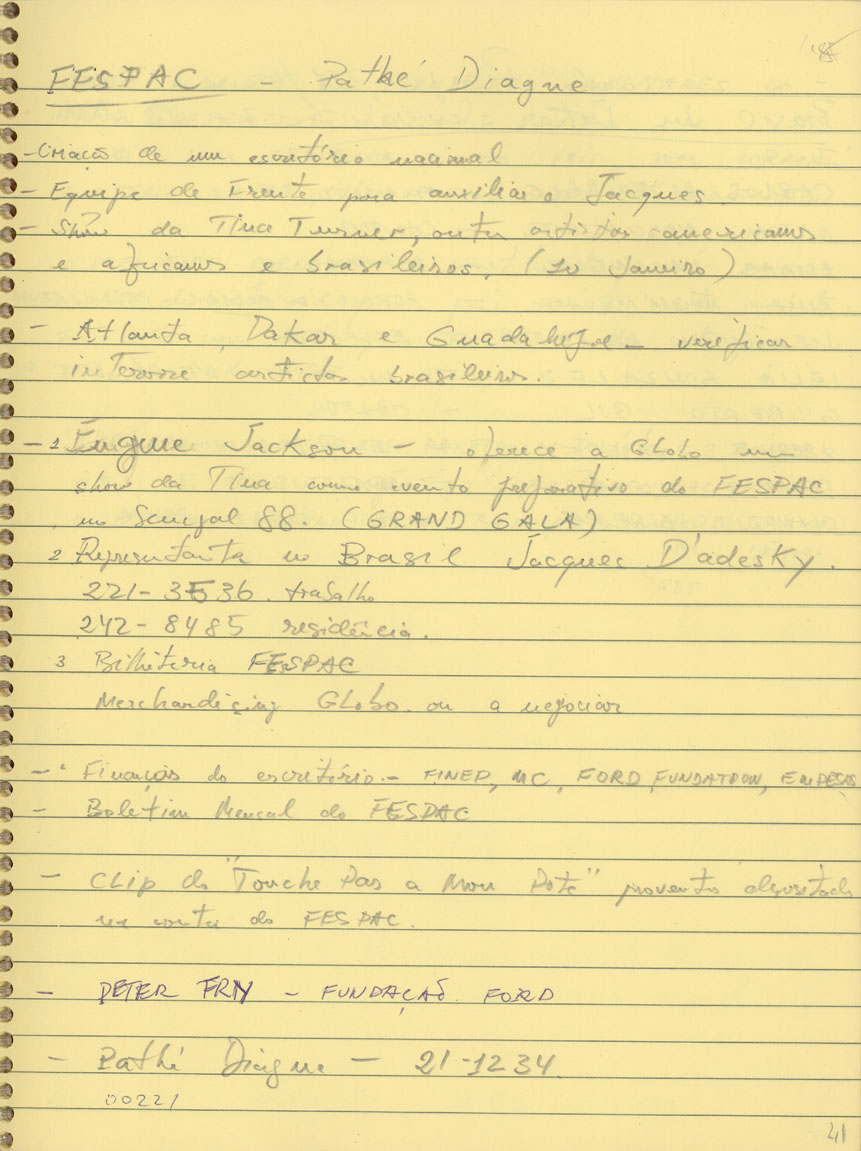 FESPAC - Pathé Diagne
- Criação de um escritório nacional
- Equipe de Frente para auxiliar o Jacques
- Show da Tina Turner, outros artistas americanos
e africanos e brasileiros. (20 Janeiro)
- Atlanta, Dakar e Guadalupe - verificar
interesse artistas brasileiros.
- 1 Eugine Jackson - oferece a Globo um
show da Tina como evento preparativo do FESPAC
no Senegal 88. (GRAND GALA)
2 Representante no Brasil Jacques D'adesky.
221-3536. trabalho
242-8485 residência.
3 Bilheteria FESPAC
Merchandising Globo. ou a negociar
- Finanças do escritório - FINEP, MC, FORD FUNDATION,
- Boletim Mensal do FESPAC
- CLip do "Touche Pas a Mon Pote"
na conta do FESPAC.
- PETER FRY - FUNDAÇAÕ FORD
- Pathé Diagne - 21-1234
00221
41